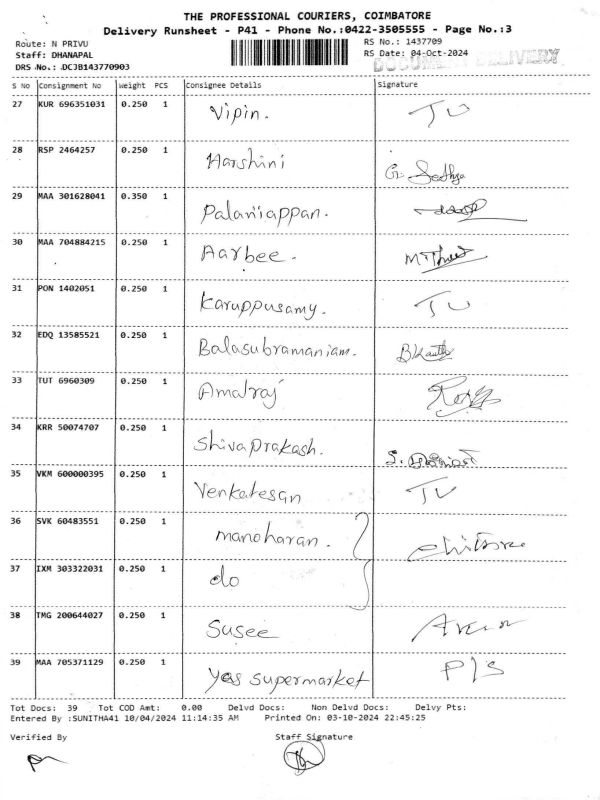 THE PROFESSIONAL COURIERS, COIMBATORE
Delivery Runsheet - P41 - Phone No.:0422-3505555 - Page No.:3
Route: N PRIVU RS No.: 1437709
Staff: DHANAPAL RS Date: 04-Oct-2024
DRS No.: DCJB143770903 DOCUMENT DELIVERY
S No Consignment No Weight PCS Consignee Details Signature
27 KUR 696351031 0.250 1 Vipin. TU
28 RSP 2464257 0.250 1 Harshini
29 MAA 301628041 0.350 1 Palaniappan.
30 MAA 704884215 0.250 1 Aarbee.
31 PON 1402051 0.250 1 Karuppusamy. TU
32 EDQ 13585521 0.250 1 Balasubramaniam.
33 TUT 6960309 0.250 1 Amalraj
34 KRR 50074707 0.250 1 Shivaprakash.
35 VKM 600000395 0.250 1 Venkatesan TU
36 SVK 60483551 0.250 1 manoharan.
37 IXM 303322031 0.250 1 do
38 TMG 200644027 0.250 1 Susee
39 MAA 705371129 0.250 1 Yes supermarket P/S
Tot Docs: 39 Tot COD Amt: 0.00 Delvd Docs: Non Delvd Docs: Delvy Pts:
Entered By :SUNITHA41 10/04/2024 11:14:35 AM Printed On: 03-10-2024 22:45:25
Verified By Staff Signature